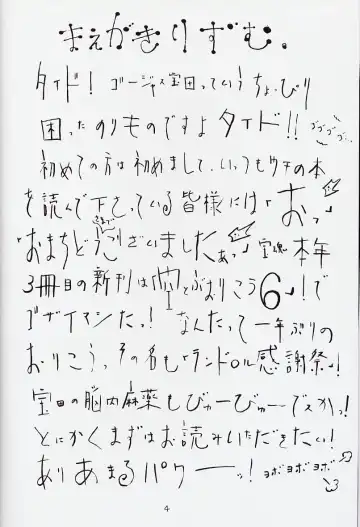 まえがきりずむ。
タイド! ゴージャス宝田っていうちょびり
困ったのりものですよタイド!! ゴゴゴゴ
初めての方は初めまして、いっつもウチの本
を読んで下さっている皆様には「おっ」
「おまちどうございましたぁっ」宝魂 本年
3冊目の新刊は「空とぶおりこう6」!で
ゴザイマシたっ! なんたって一年ぶりの
おりこうっ、その名も「ランドロル感謝祭っ」
宝田の脳内麻薬もびゅーびゅーでスかっ!
とにかくまずはお読みいただきたい!
ありあまるパワーーッ! ヨボヨボヨボ
4